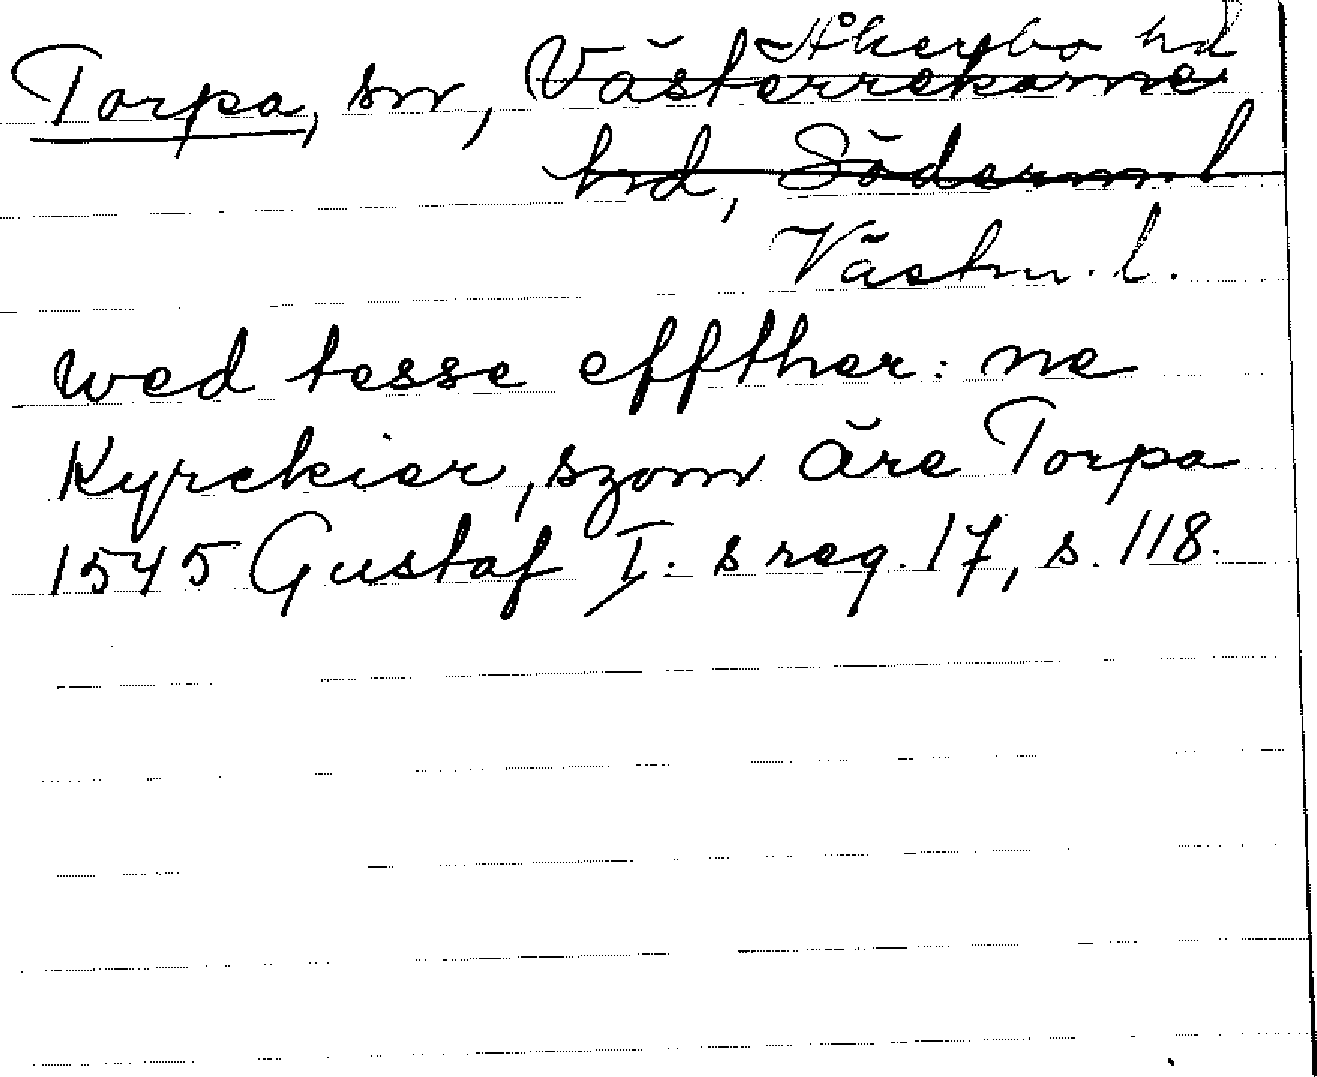 Åkerbo hd
Torpa, sn, Västerrekarne
hd, Söderm. l
Västm. l.
wed tesse effther: ne
Kyrckier, szom äre Torpa
1545 Gustaf I. s reg. 17, s. 118.